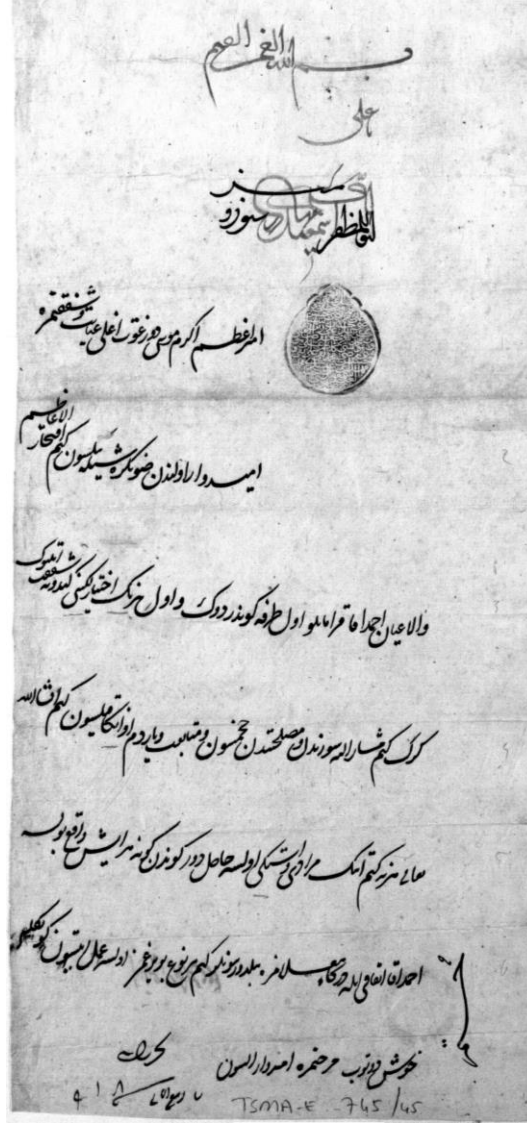 بسم الله الغني المغني
علي
ابو المظفر اسمعيل بهادر سوزومز
امير اعظم اكرم موسى دورغوت اغلى عنايت و شفقتمزه
اميدوار اولندن صونكره شيله بيلسون كيم افتخار الاعاظم
والاعيان احمد اقا قرامانلو اول طرفه كوندردوك و اول يرنك اختيارلكينى كندويه شفقت اتدوك
كرك كيم مشار اليه سوزندن و مصلحتندن چخمسون و متابعت و ياردم اوانكا قيلسون كيم انشاالله
تعالى هر نه كيم انك مرادى و استكى اولسه حاصل دور كوندن كونه هر ايش واقع بولسه
احمد اقا اتفاقى ايله دركاه معلامزه بلدورسونلر كيم هر نوع بويرغمز اولسه عمل ايتسون كونكلينى
خوش دوتوب مرحتمزه اميدوار السون
تحريرا فى
٧ ربيع الاول سنه ٩١٨
TSMA-E 745/45